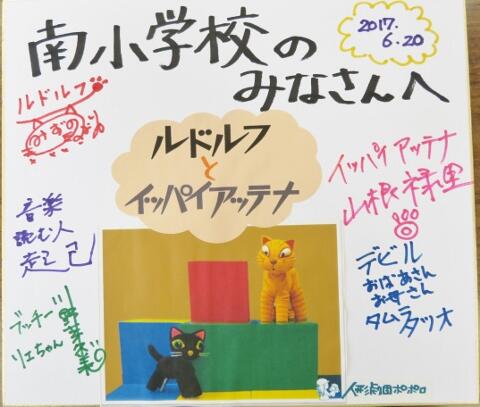 南小学校の
みなさんへ
2017.
6.20
ルドルフ
みずの
ルドルフ
と
イッパイアッテナ
イッパイアッテナ
山根禄里
音楽
読む人
起己
デビル
おばあさん
お母さん
タムラタツオ
ブッチー
リエちゃん
人形劇団ポポロ